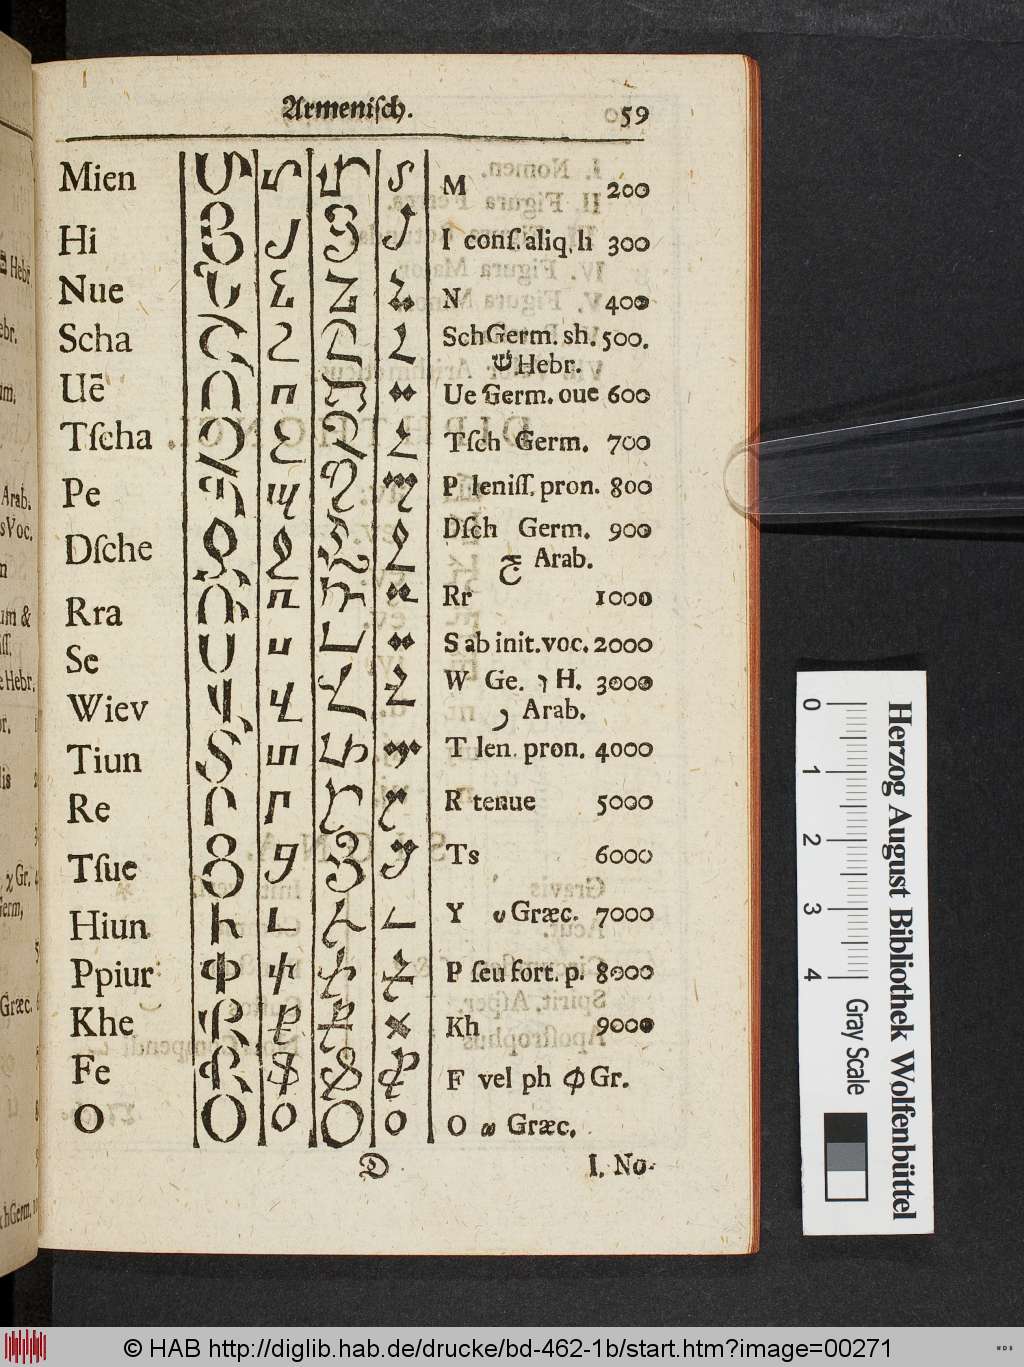 Armeniſch. 59
Mien Մ մ M 200
Hi Յ յ I conſ. aliq. li 300
Nue Ն ն N 400
Scha Շ շ Sch Germ. sh. 500.
שׁ Hebr.
Uē Ո ո Ue Germ. oue 600
Tſcha Չ չ Tſch Germ. 700
Pe Պ պ P leniſſ. pron. 800
Dſche Ջ ջ Dſch Germ. 900
ج Arab.
Rra Ռ ռ Rr 1000
Se Ս ս S ab init. voc. 2000
Wiev Վ վ W Ge. ו H. 3000
و Arab.
Tiun Տ տ T len. pron. 4000
Re Ր ր R tenue 5000
Tſue Ց ց Ts 6000
Hiun Ւ ւ Y υ Græc. 7000
Ppiur Փ փ P ſeu fort. p. 8000
Khe Ք ք Kh 9000
Fe Ֆ ֆ F vel ph Φ Gr.
O Օ օ O ω Græc.
D I. No-
Hebr
Arab.
Voc.
um &
Hebr.
Gr.
Germ,
Græc.
h Germ.
Herzog August Bibliothek Wolfenbüttel
0 1 2 3 4
Gray Scale
© HAB http://diglib.hab.de/drucke/bd-462-1b/start.htm?image=00271